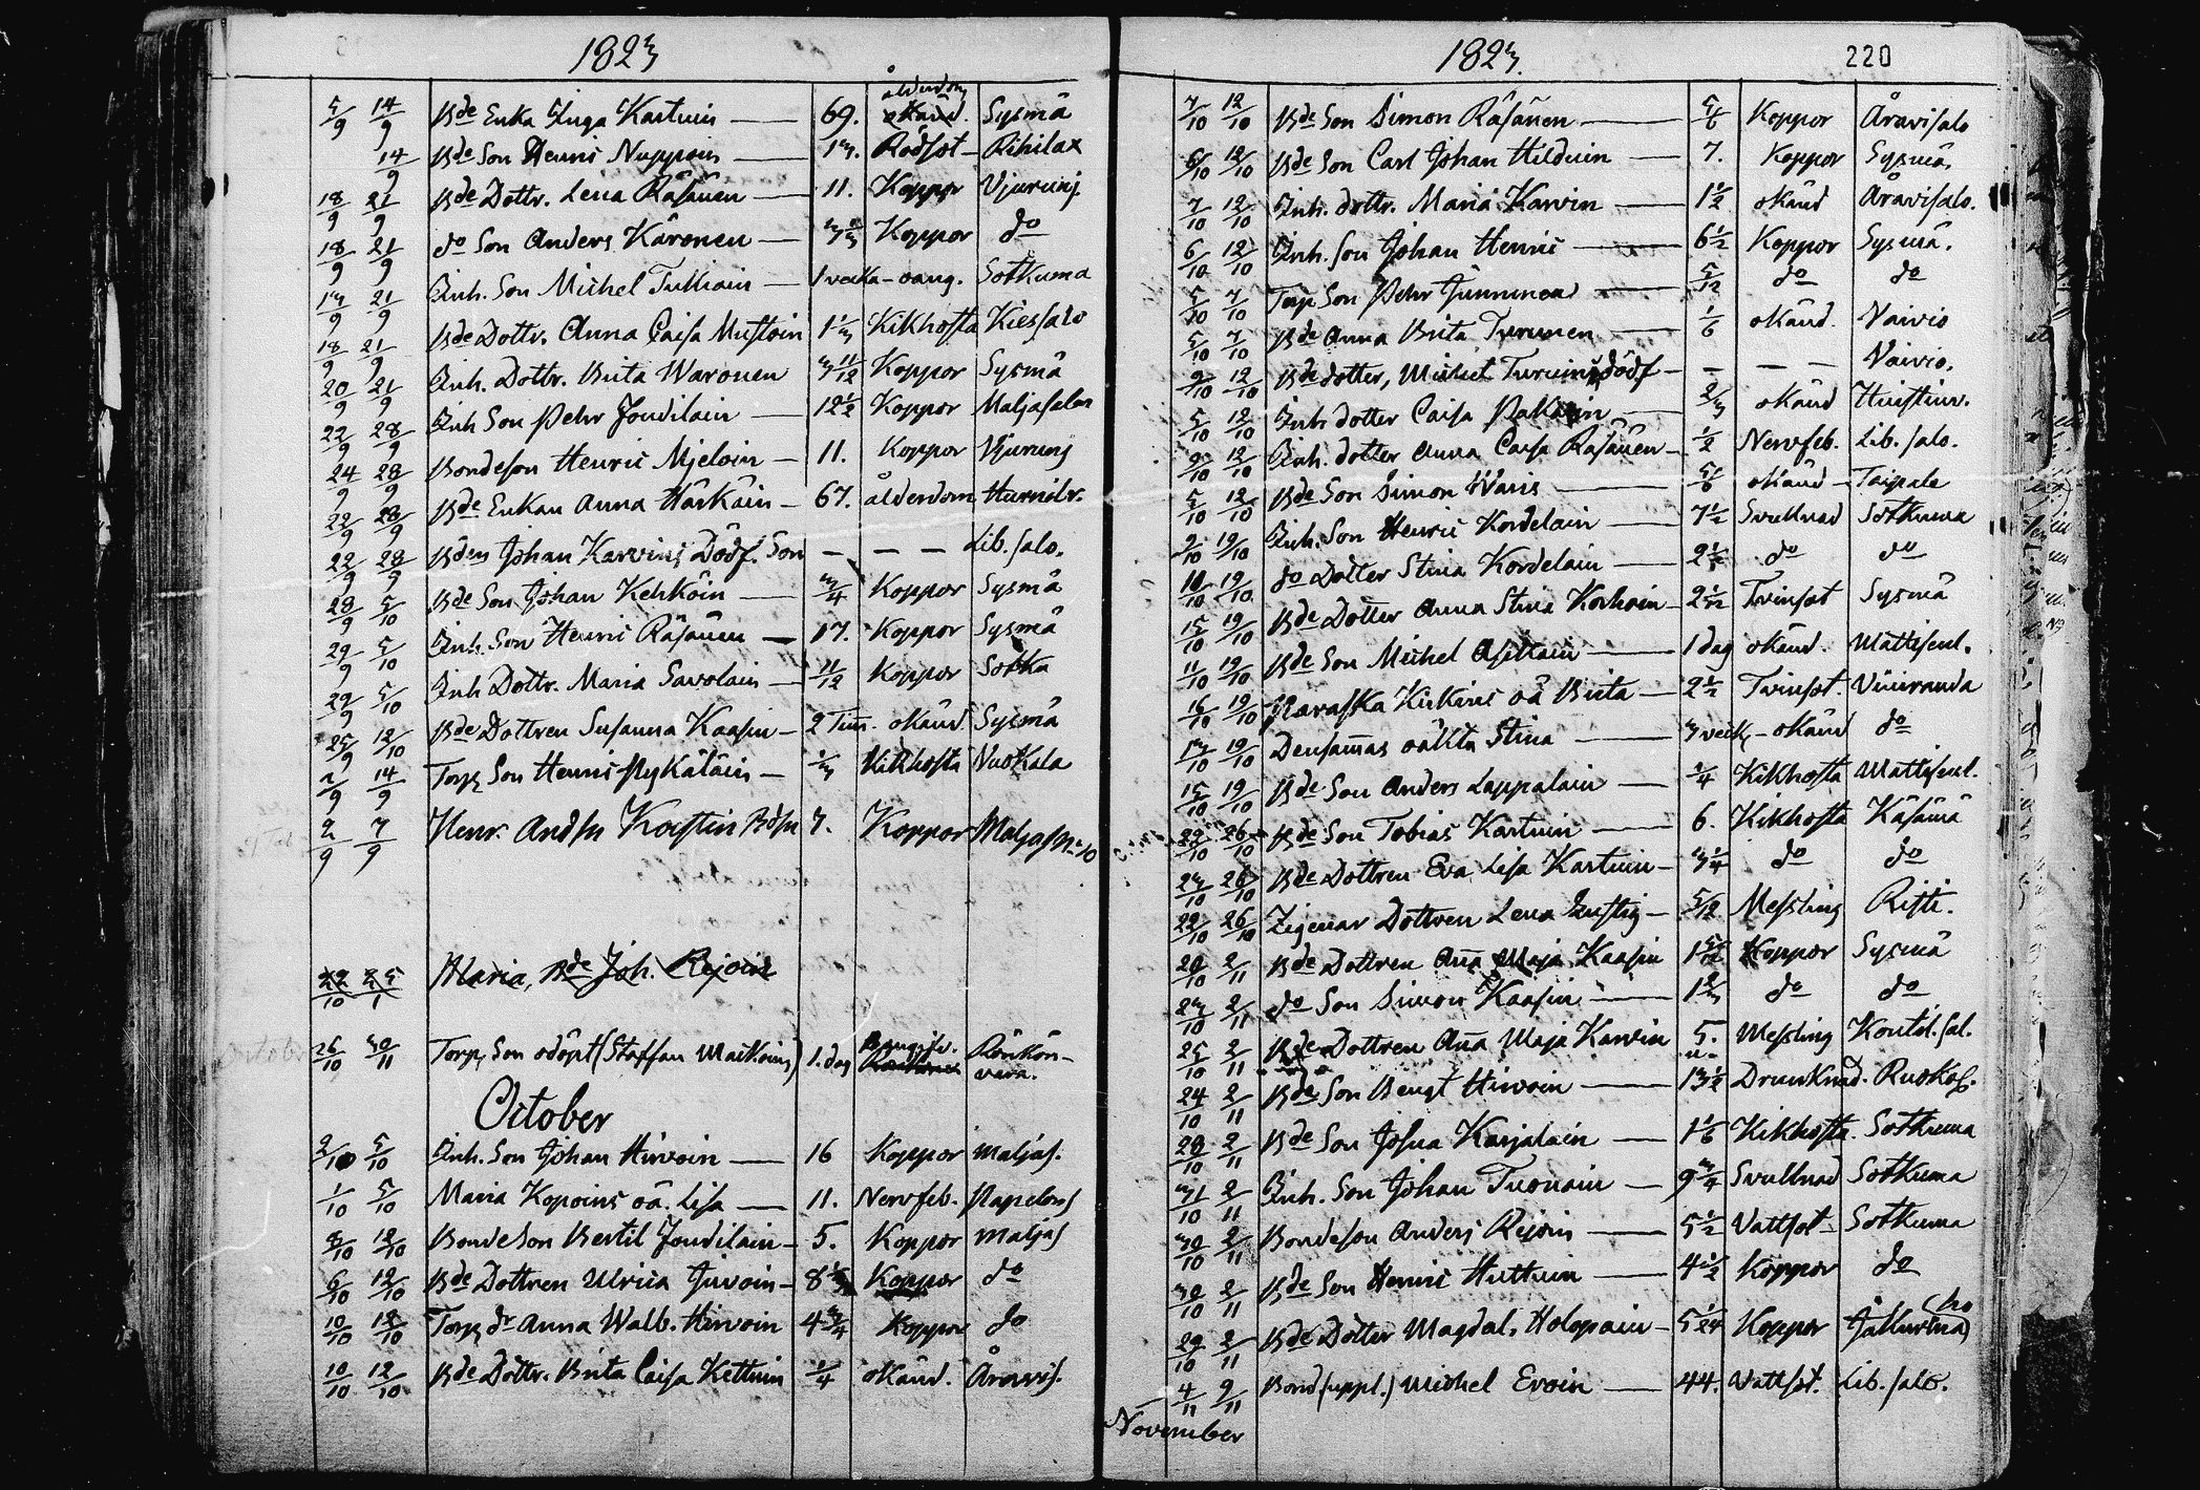 1823
5/9 14/9 Bde Enka Inga Kartuin — 69. ålderdom okänd. Sysmä
14/9 Bde Son Henric Nuppoin — 13. Rödsot — Rihilax
18/9 21/9 Bde Dottr. Lena Räsänen — 11. Koppor Vjurunj
18/9 21/9 do Son Anders Käronen — Koppor do
13/9 21/9 Inh. Son Michel Tukiain — 1 vecka — oang. Sotkuma
18/9 21/9 Bde Dottr. Anna Caisa Mustoin 1 1/3 Kikhosta Kiessalo
20/9 21/9 Inh. Dottr. Brita Waronen 3 11/12 Koppor Sysmä
22/9 28/9 Inh Son Pehr Joudilain — 12 1/2 Koppor Maljasalon
24/9 28/9 Bondeson Henric Mjeloin — 11. Koppor Vjurunj
22/9 28/9 Bde Enkan Anna Härkäin — 67. ålderdom Hurnilv.
22/9 28/9 Bdens Johan Karvins Dödf. Son — — — Lib. salo.
28/9 5/10 Bde Son Johan Kehköin — 3/4 Koppor Sysmä
29/9 5/10 Inh. Son Henric Räsänen — 17. Koppor Sysmä
29/9 5/10 Inh Dottr. Maria Savolain — 11/12 Koppor Sotka
25/9 12/10 Bde Dottren Susanna Kaasin — 2 Tim. okänd. Sysmä
2/9 14/9 Torp. Son Henric Pykäläin — Kikhosta Nuokala
2/9 7/9 Henr. Andsn Kostin Bdsn 7. Koppor Maljasalo
22/10 Maria, Bde Joh. Rejoin
26/10 30/11 Torp. Son odöpt (Staffan Maikoins) 1. dag Rönkön-
vara.
October
2/10 5/10 Inh. Son Johan Hirvoin — 16 Koppor Maljas.
1/10 5/10 Maria Kopoins oä. Lisa — 11. Nervfeb. Napelons
8/10 12/10 Bondeson Bertil Joudilain — 5. Koppor Maljas
6/10 12/10 Bde Dottren Ulrica Juvoin — 8 Koppor do
10/10 12/10 Torp. dr Anna Walb. Hirvoin 4 3/4 Koppor do
10/10 12/10 Bde Dottr. Brita Caisa Kettuin 1/4 okänd. Åravis.
1823. 220
7/10 12/10 Bde Son Simon Räsänen — 5/6 Koppor Åravisalo
6/10 12/10 Bde Son Carl Johan Hilduin — 7. Koppor Sysmä.
7/10 12/10 Inh. dottr. Maria Karvin — 1 1/2 okänd Åravisalo.
6/10 12/10 Inh. Son Johan Henric — 6 1/2 Koppor Sysmä.
5/10 7/10 Torp Son Pehr Jünninen — 5/12 do do
5/10 7/10 Bde Anna Brita Turunen — 1/6 okänd. Vaivio
9/10 12/10 Bde dotter, Michel Turuins dödf — — — — Vaivio.
5/10 12/10 Inh dotter Caisa Pakarin — 2/3 okänd
9/10 12/10 Inh. dotter Anna Caisa Räsänen — 1/2 Nervfeb. Lib. salo.
5/10 12/10 Bde Son Simon Waris — 5/6 okänd — Taipale
9/10 19/10 Inh. Son Henric Kordelain — 7 1/2 Svullnad Sotkuma
10/10 19/10 do Dotter Stina Kordelain — 2 1/2 do do
15/10 19/10 Bde Dotter Anna Stina Korhoin — 2 1/12 Tvinsot Sysmä
11/10 19/10 Bde Son Michel Asikain — 1 dag okänd. Mattiseul.
16/10 19/10 Narafka Kirkins oä Brita — 2 1/2 Tvinsot. Viiniranda
13/10 19/10 Densammas oäkta Stina — 3 veck. — okänd do
15/10 19/10 Bde Son Anders Lappalain — 1/4 Kikhosta Mattiseul.
22/10 26/10 Bde Son Tobias Kartuin — 6. Kikhosta Käsämä
23/10 26/10 Bde Dottren Eva Lisa Kartuin — 3 1/4 do do
22/10 26/10 Zigenar Dottren Lena Lustig — 5/12 Messling Risti.
20/10 2/11 Bde Dottren Anna Maja Kaasin 1 5/12 Koppor Sysmä
23/10 2/11 do Son Simon Kaasin — 1 2/3 do do
25/10 2/11 Bde Dottren Anna Maja Karvin 5. Messling Kontd. sal.
24/10 2/11 Bde Son Bengt Hirvoin — 13 1/2 Drunknad. Ruokos.
28/10 2/11 Bde Son Josua Karjalain — 1 1/6 Kikhosta. Sotkuma
31/10 2/11 Inh. Son Johan Tuonain — 9 3/4 Svullnad Sotkuma
30/10 2/11 Bondeson Anders Rejoin — 5 1/2 Vattsot — Sotkuma
30/10 2/11 Bde Son Henric Huttuin — 4 1/2 Koppor do
29/10 2/11 Bde Dotter Magdal. Holopain — 5 1/24 Koppor
4/11 9/11 Bond (uppl.) Michel Evoin — 44. Vattsot. Lib. salo.
November